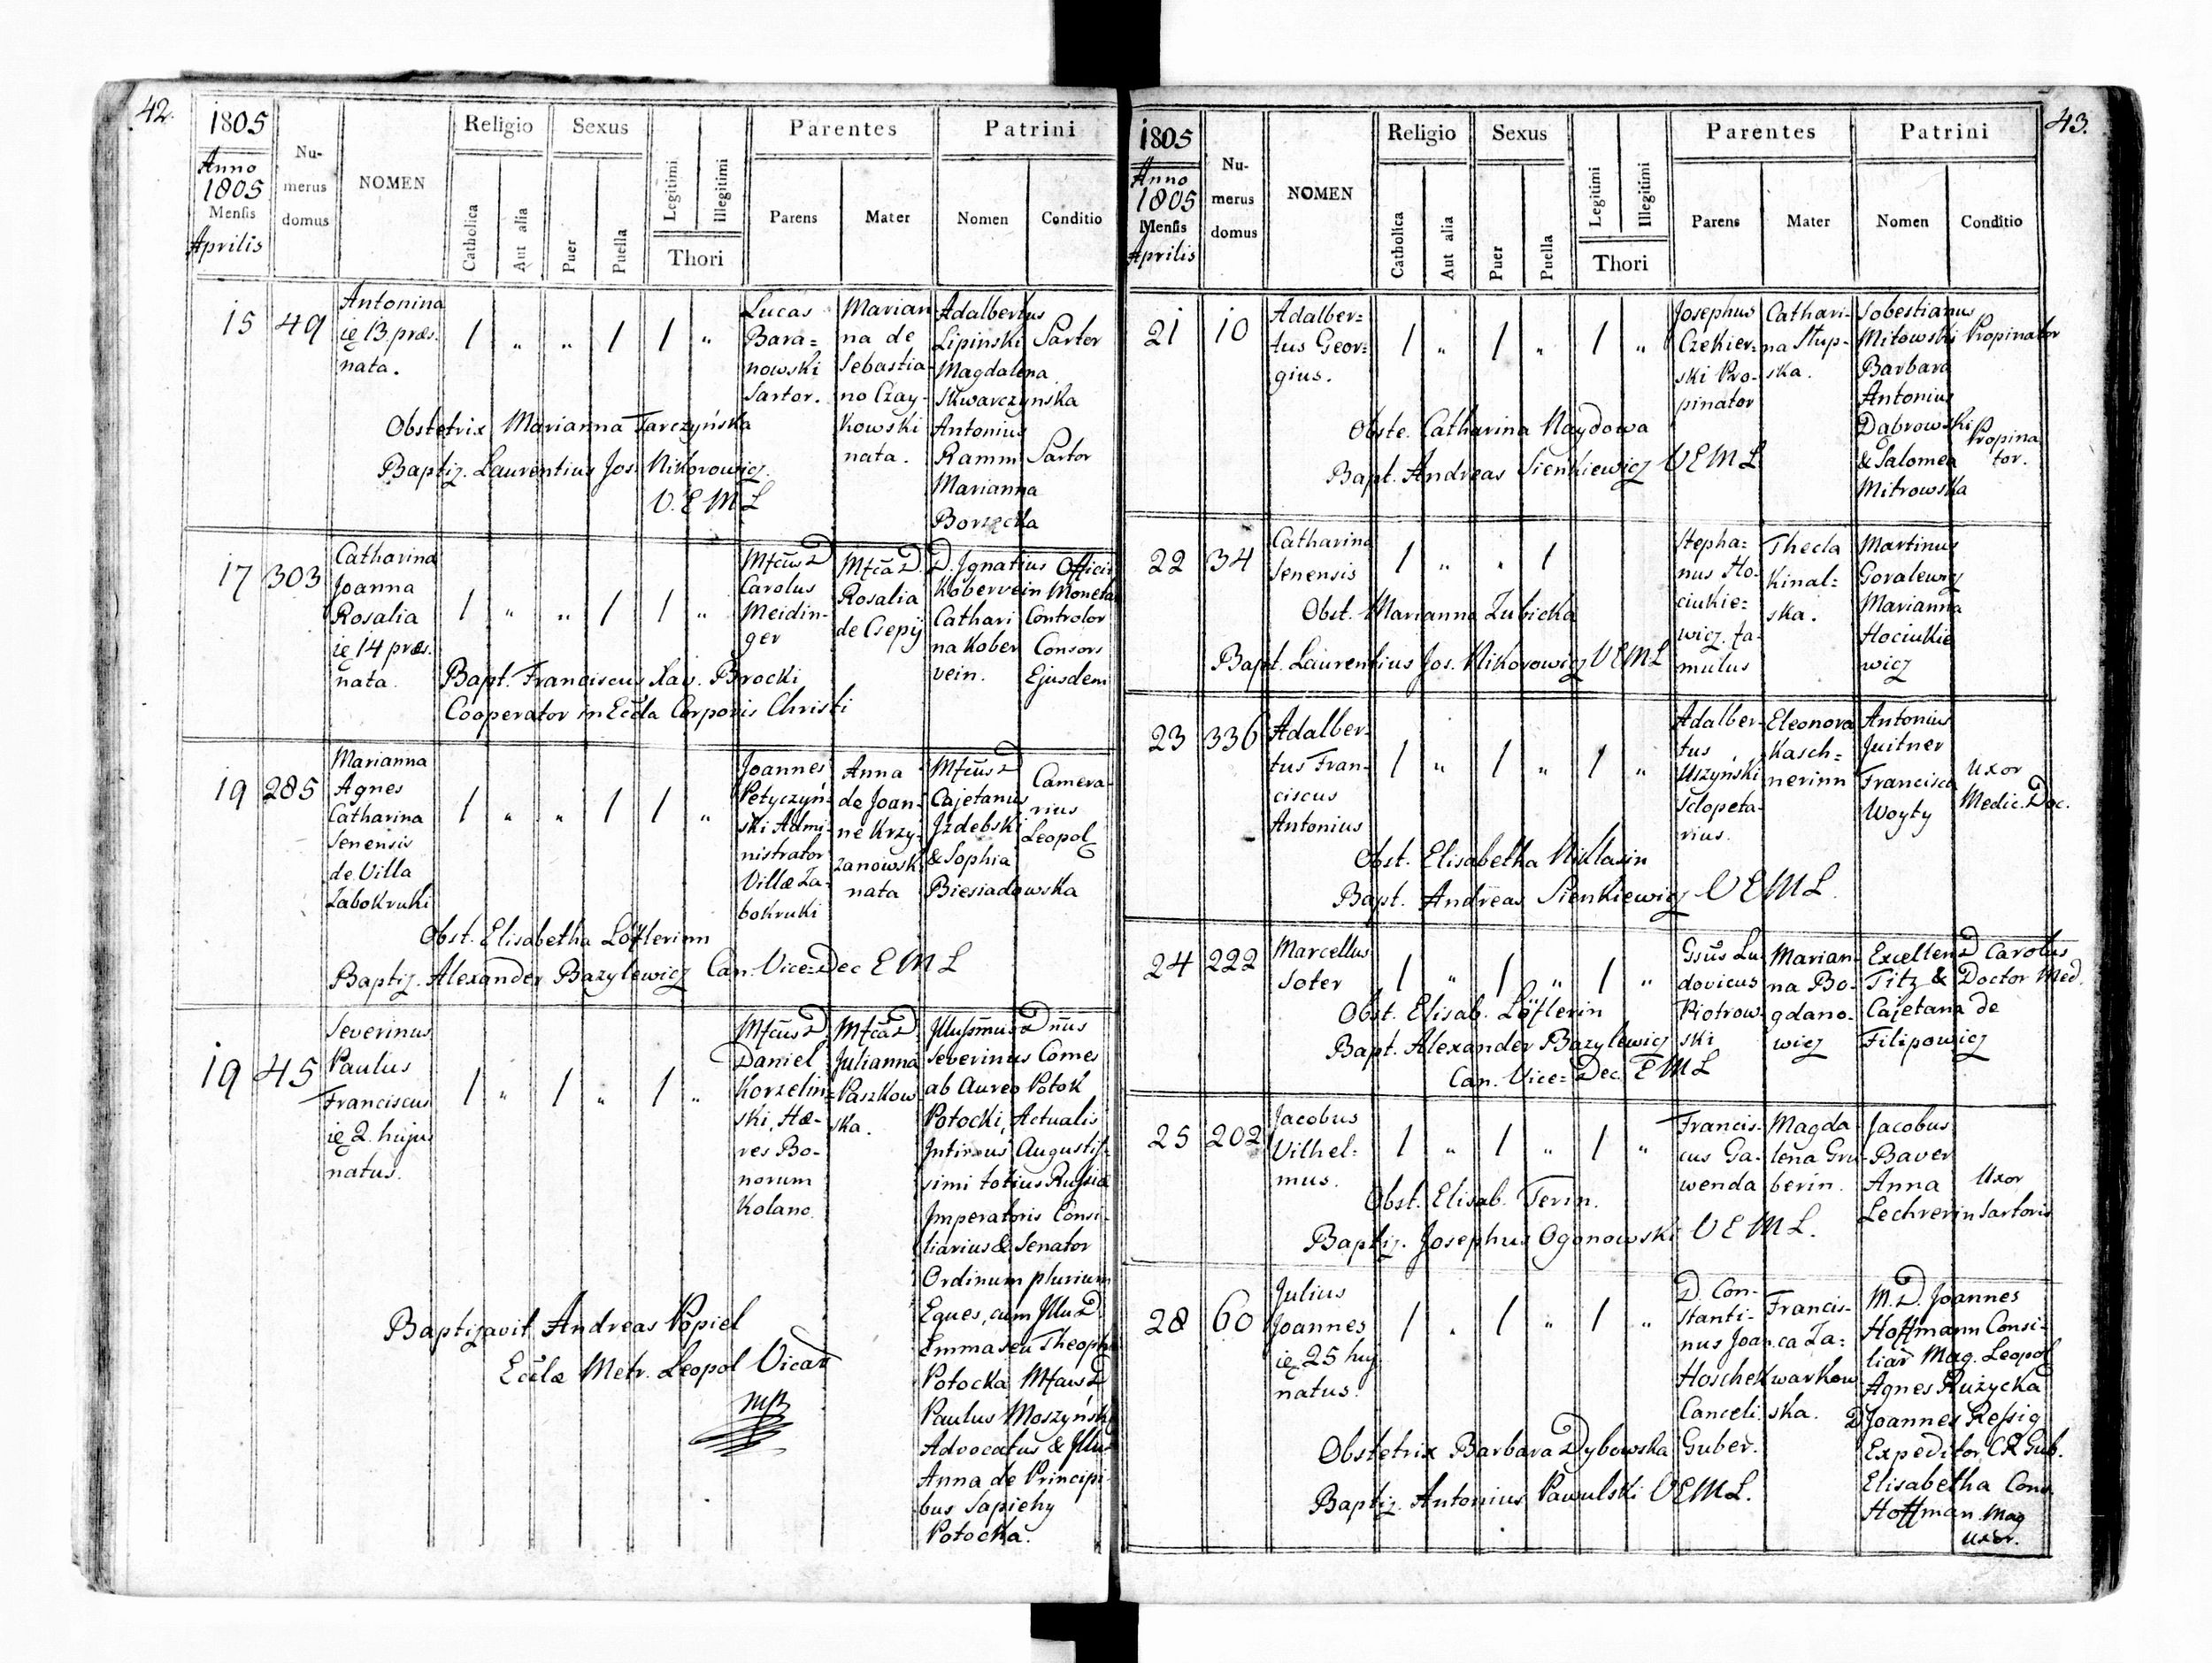 42.
1805
Anno
1805
Mensis
Aprilis
Nu-
merus
domus
NOMEN
Religio
Catholica
Aut alia
Sexus
Puer
Puella
Legitimi
Illegitimi
Thori
Parentes
Parens
Mater
Patrini
Nomen
Conditio
15
49
Antonina
ie 13. præs.
nata.
/ " " / / "
Lucas
Bara=
nowski
Sartor.
Marian
na de
Sebastia-
no Czay-
kowski
nata.
Adalbertus
Lipinski Sartor
Magdalena
Skwarczynska
Antonius
Ramm Sartor
Marianna
Borzecka
Obstetrix Marianna Tarczyńska
Baptiz. Laurentius Jos. Nikorowicz.
V. E M L
17
303
Catharina
Joanna
Rosalia
ie 14 præs.
nata.
/ " " / / "
Mfcus D
Carolus
Meidin-
ger
Mfca D.
Rosalia
de Csepÿ
D. Ignatius Officii
Kobervein Moneta
Cathari Controlor
na Kober Consors
vein. Ejusdem
Bapt. Franciscus Xav. Brocki
Cooperator in Eccla Corporis Christi
19
285
Marianna
Agnes
Catharina
Senensis
de Villa
Zabokruki
/ " " / / "
Joannes
Petyczyń-
ski Admi-
nistrator
Villæ Za-
bokruki
Anna
de Joan-
ne Krzy-
zanowski
nata
Mfcus D
Cajetanus
Izdebski
& Sophia
Biesiadowska
Camera-
rius
Leopol
Obst. Elisabetha Löflerinn
Baptiz. Alexander Bazylewicz Can. Vice=Dec E M L
19
45
Severinus
Paulus
Franciscus
ie 2. hujus
natus.
/ " / " / "
Mfcus D
Daniel
Korzelin=
ski, Hæ-
res Bo-
norum
Kolano.
Mfca D
Julianna
Paszkow
ska.
Illussmus Dnus
Severinus Comes
ab Aureo Potok
Potocki, Actualis
Intimus Augustis-
simi totius Russiæ
Imperatoris Consi-
liarius & Senator
Ordinum plurium
Eques, cum Illu D
Emma seu Theoph
Potocka Mfcus D
Paulus Moszyński
Advocatus & Illu
Anna de Principi-
bus Sapiehy
Potocka.
Baptizavit Andreas Popiel
Ecclæ Metr. Leopol Vicar
mp
43.
1805
Anno
1805
Mensis
Aprilis
Nu-
merus
domus
NOMEN
Religio
Catholica
Aut alia
Sexus
Puer
Puella
Legitimi
Illegitimi
Thori
Parentes
Parens
Mater
Patrini
Nomen
Conditio
21
10
Adalber=
tus Geor=
gius.
/ " / " / "
Josephus
Czekier-
ski Pro-
pinator
Cathari-
na Slup-
ska.
Sobestianus
Mitowski Propinator
Barbara
Antonius
Dąbrowski Propina
& Salomea tor.
Mitrowska
Obste. Catharina Naydowa
Bapt. Andreas Sienkiewicz V E M L
22
34
Catharina
Senensis
/ " " /
Stepha=
nus Ho-
ciukie=
wicz. fa-
mulus
Thecla
Kinal=
ska.
Martinus
Goralewicz
Marianna
Hociukie
wicz
Obst. Marianna Zubicka
Bapt. Laurentius Jos. Nikorowicz V E M L
23
336
Adalber-
tus Fran-
ciscus
Antonius
/ " / " / "
Adalber-
tus
Uszyński
Sclopeta-
rius.
Eleonora
Kasch=
nerinn
Antonius
Juitner
Francisca Uxor
Woyty Medic. Doc.
Obst. Elisabetha Niklasin
Bapt. Andreas Sienkiewicz V E M L.
24
222
Marcellus
Soter
/ " / " / "
Gsus Lu-
dovicus
Piotrow-
ski
Marian-
na Bo-
gdano-
wicz
Excellen D Carolus
Titz & Doctor Med.
Cajetana de
Filipowicz
Obst. Elisab. Löflerin
Bapt. Alexander Bazylewicz
Can. Vice=Dec. E M L
25
202
Jacobus
Vilhel=
mus.
/ " / " / "
Francis-
cus Ga-
wenda
Magda
lena Gru-
berin.
Jacobus
Baver
Anna Uxor
Lechrerin Sartoris
Obst. Elisab. Ferin.
Baptiz. Josephus Ogonowski V E M L.
28
60
Julius
Joannes
ie 25 huj
natus.
/ " / " / "
D. Con-
stanti-
nus Joan.
Hoschek
Canceli.
Guber.
Francis-
ca Za=
kwarkow
ska.
M. D. Joannes
Hoffmann Consi-
liar Mag. Leopol
Agnes Rużycka
D Joannes Ressig
Expeditor CR Gub.
Elisabetha Cons.
Hoffman. Mag
uxor.
Obstetrix Barbara Dybowska
Baptiz. Antonius Pawulski V E M L.